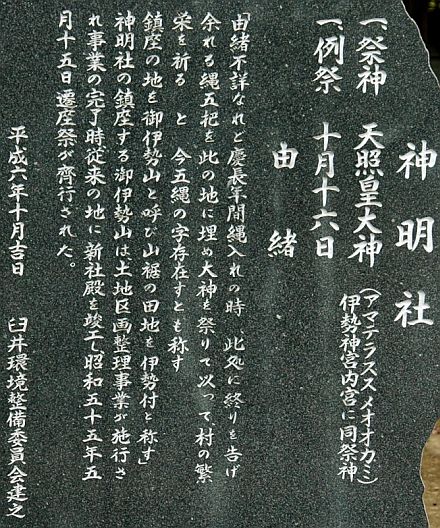 神明社
一、祭神 天照皇大神(アマテラススメオオカミ)伊勢神宮内宮に同祭神
一、例祭 十月十六日
由緒
「由緒不詳なれど慶長年間縄入れの時、此処に終りを告げ
余れる縄五把を此の地に埋め大神を祭りて以って村の繁
栄を祈る と 今五縄の字存在すとも称す
鎮座の地を御伊勢山と呼び山裾の田地を伊勢付と称す」
神明社の鎮座する御伊勢山は、土地区画整理事業が施行さ
れ事業の完了時従来の地に新社殿を竣工し昭和五十五年五
月十五日遷座祭が斉行された。
平成六年十月吉日 臼井環境整備委員会建之